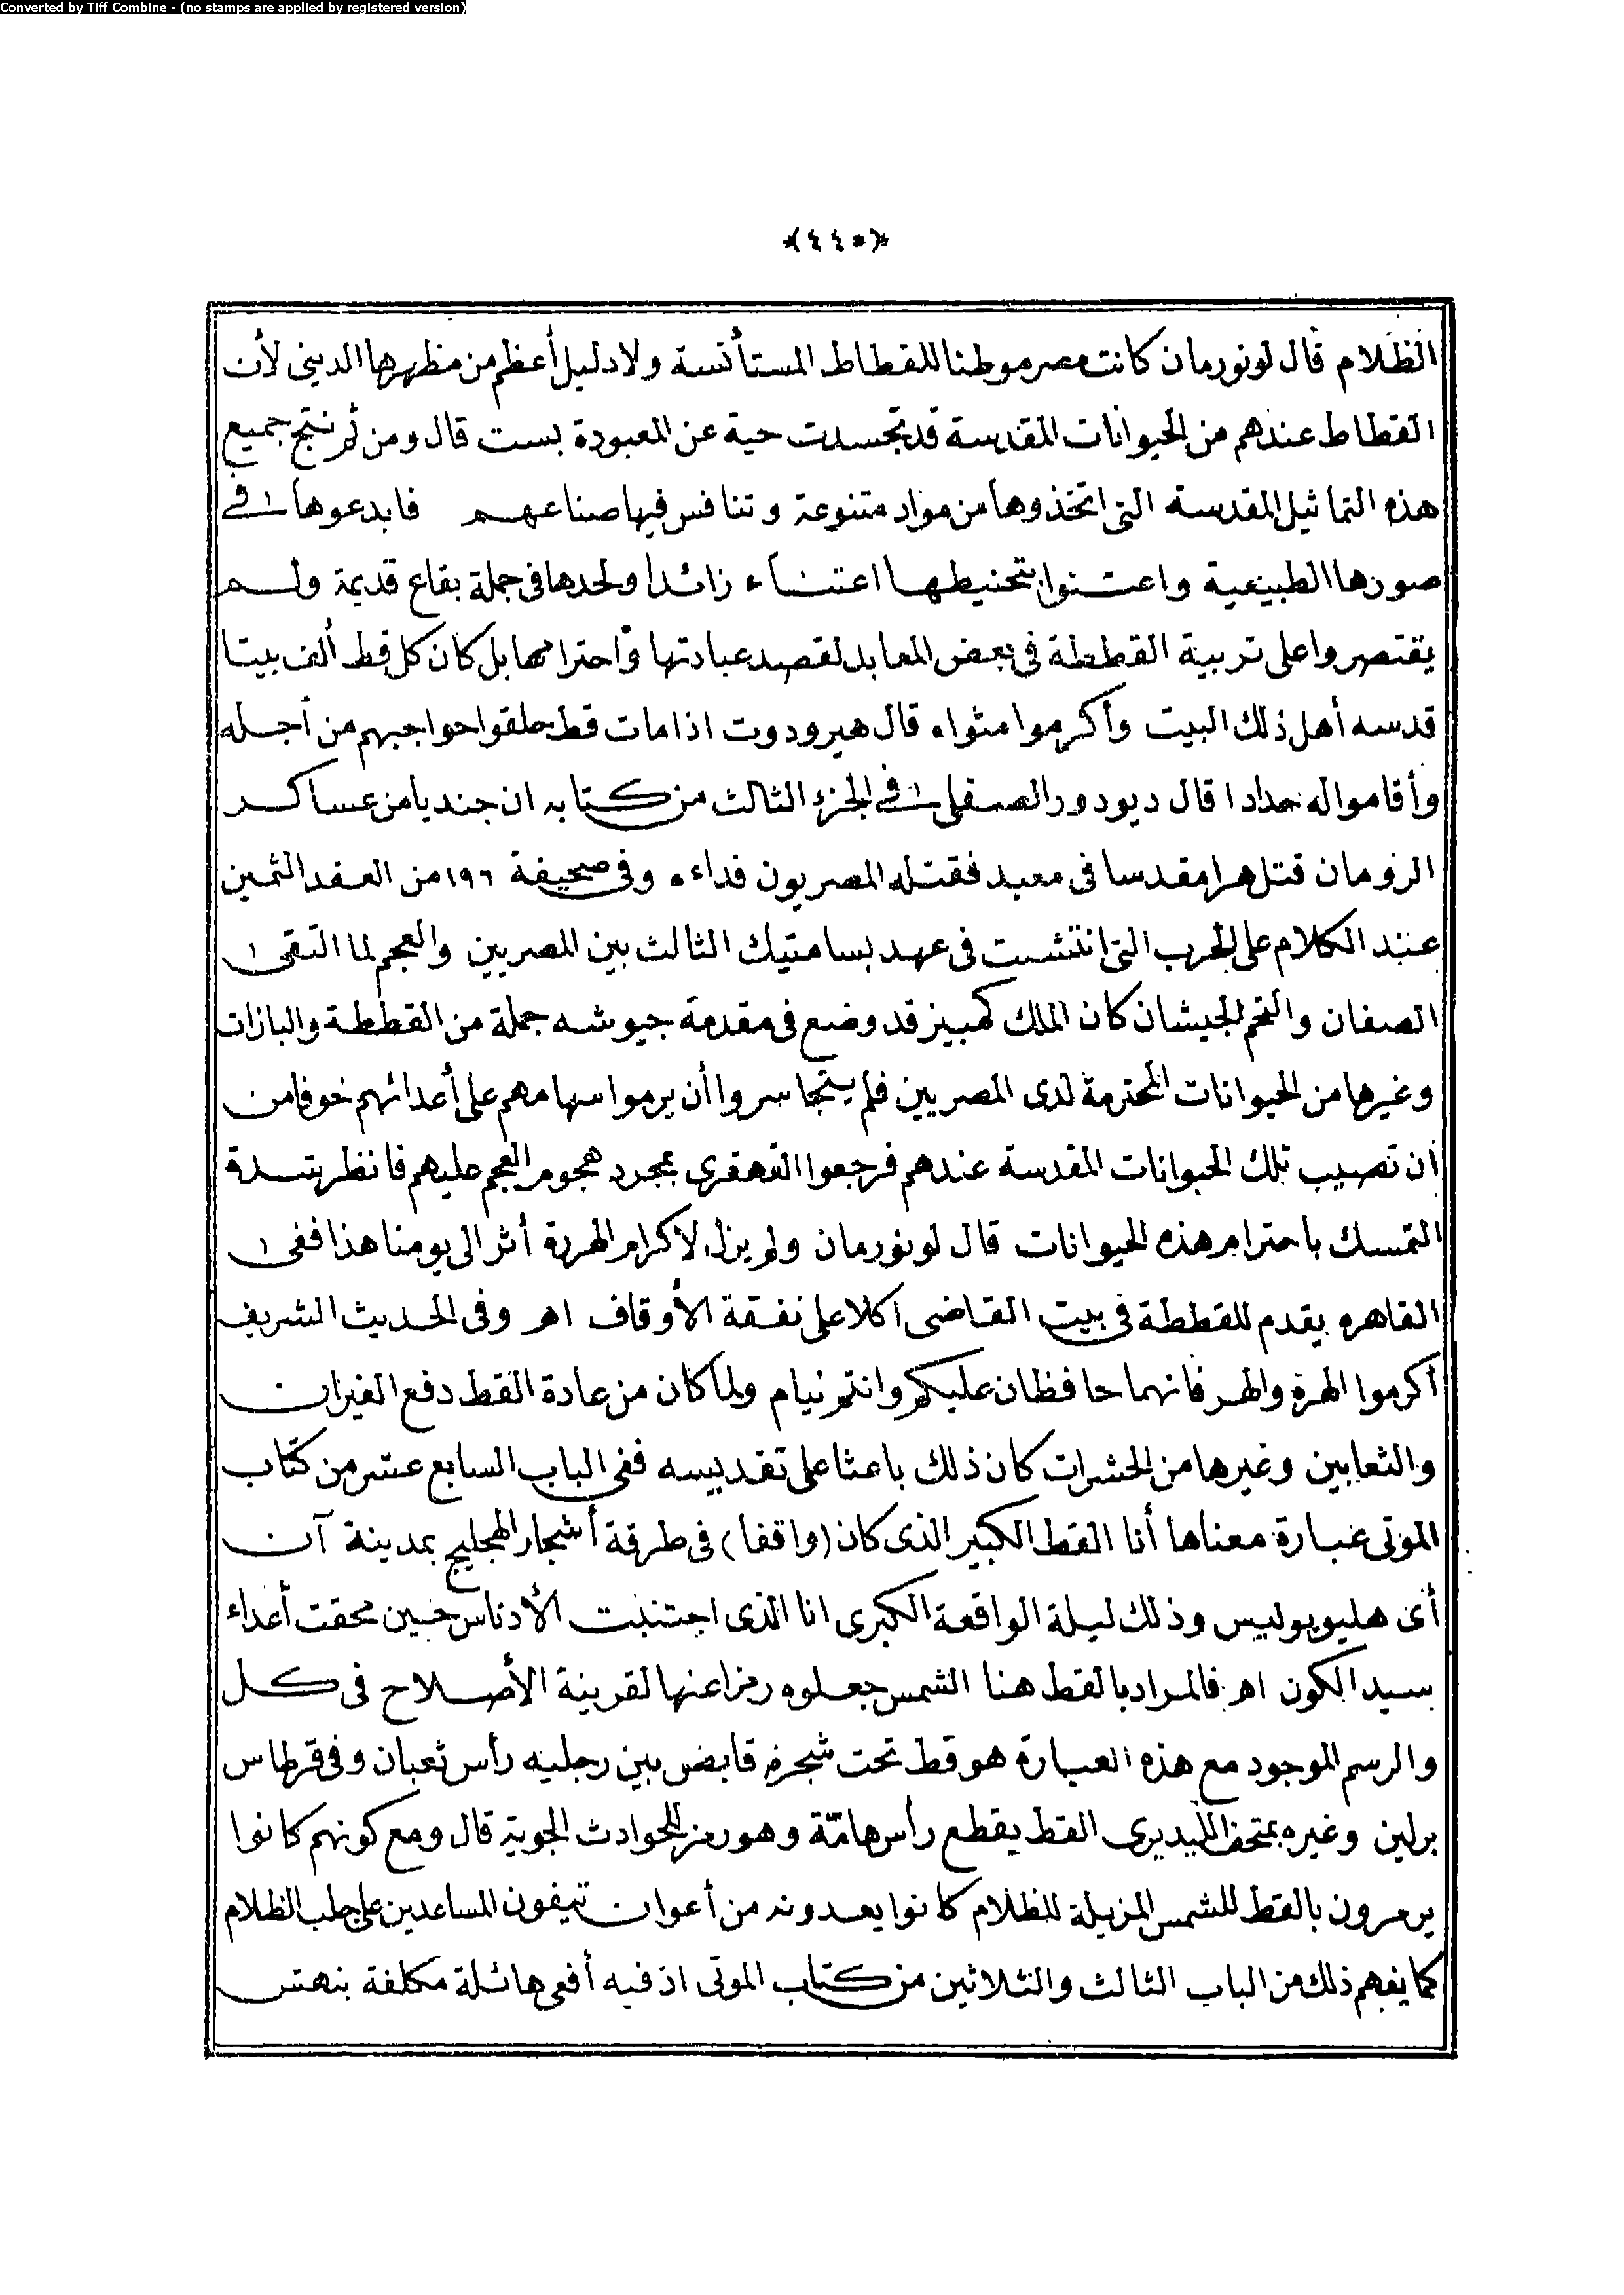 Converted by Tiff Combine - (no stamps are applied by registered version)
﴿٤٤٠﴾
الظلام قال لونورمان كانت مصر موطنا للقطاط المستأنسة ولا دليل أعظم من مظهرها الدينى لأن
القطاط عندهم من الحيوانات المقدسة قد تجسدت حية عن المعبودة بست قال ومن ثم نتج جميع
هذه التماثيل المقدسة التى اتخذوها من مواد متنوعة وتنافس فيها صناعهم فابدعوها فى
صورها الطبيعية واعتنوا بتحنيطها اعتناء زائدا ولحدها فى جملة بقاع قديمة ولم
يقتصروا على تربية القططة فى بعض المعابد لقصد عبادتها واحترامها بل كان كل قط ألف بيتا
قدسه أهل ذلك البيت وأكرموا مثواه قال هيرودوت اذا مات قط حلقوا حواجبهم من أجله
وأقاموا له حدادا قال ديودور الصقلى فى الجزء الثالث من كتابه ان جنديا من عساكر
الرومان قتل هرا مقدسا فى معبد فقتله المصريون فداءه وفى صحيفة ١٩٦ من العقد الثمين
عند الكلام على الحرب التى انتشت فى عهد بسامتيك الثالث بين المصريين والعجم لما التقى
الصفان والتحم الجيشان كان الملك كمبيز قد وضع فى مقدمة جيوشه جملة من القططة والبازات
وغيرها من الحيوانات المحترمة لدى المصريين فلم يتجاسروا أن يرموا سهامهم على أعدائهم خوفا من
ان تصيب تلك الحيوانات المقدسة عندهم فرجعوا القهقرى بمجرد هجوم العجم عليهم فانظر بشدة
التمسك باحترام هذه الحيوانات قال لونورمان ولم يزل لاكرام الهررة أثر الى يومنا هذا ففى
القاهره يقدم للقططة فى بيت القاضى اكلا على نفقة الأوقاف اهر وفى الحديث الشريف
أكرموا الهرة والهر فانهما حافظان عليكم وانتم نيام ولما كان من عادة القط دفع الفيران
والثعابين وغيرها من الحشرات كان ذلك باعثا على تقديسه ففى الباب السابع عشر من كتاب
الموتى عبارة معناها أنا القط الكبير الذى كان (واقفا) فى طرقة أشجار الهجليج بمدينة آن
أى هليوبوليس وذلك ليلة الواقعة الكبرى انا الذى اجتنبت الأدناس حين محقت أعداء
سيد الكون اهر فالمراد بالقط هنا الشمس جعلوه رمزا عنها لقرينة الأصلاح فى كل
والرسم الموجود مع هذه العبارة هو قط تحت شجرة قابض بين رجليه رأس ثعبان وفى قرطاس
برلين وغيره بمتحف الليديرى القط يقطع رأس هامّة وهو رمز للحوادث الجوية قال ومع كونهم كانوا
يرمزون بالقط للشمس المزيلة للظلام كانوا يعدونه من أعوان تيفون المساعدين على جلب الظلام
كما يفهم ذلك من الباب الثالث والثلاثين من كتاب الموتى اذ فيه أفعى هائلة مكلفة بنهش